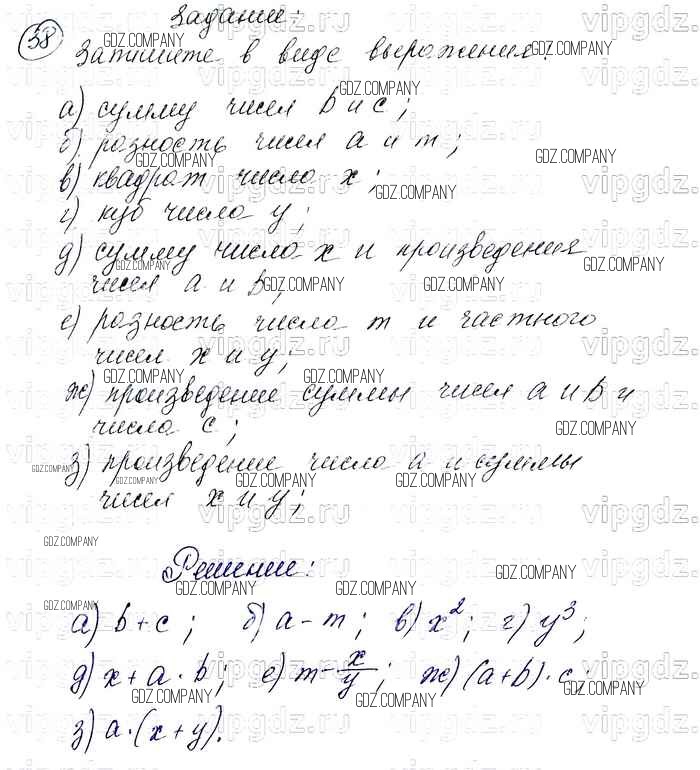 38 Задание:
Запишите в виде выражения:
а) сумму чисел b и c;
б) разность чисел a и m;
в) квадрат числа x;
г) куб числа y;
д) сумму числа x и произведения
чисел a и b;
е) разность числа m и частного
чисел x и y;
ж) произведение суммы чисел a и b и
числа c;
з) произведение числа a и суммы
чисел x и y;
Решение:
а) b + c ; б) a - m ; в) x²; г) y³;
д) x + a · b ; е) m - x/y ; ж) (a + b) · c ;
з) a · (x + y).
GDZ.COMPANY
vipgdz.ru